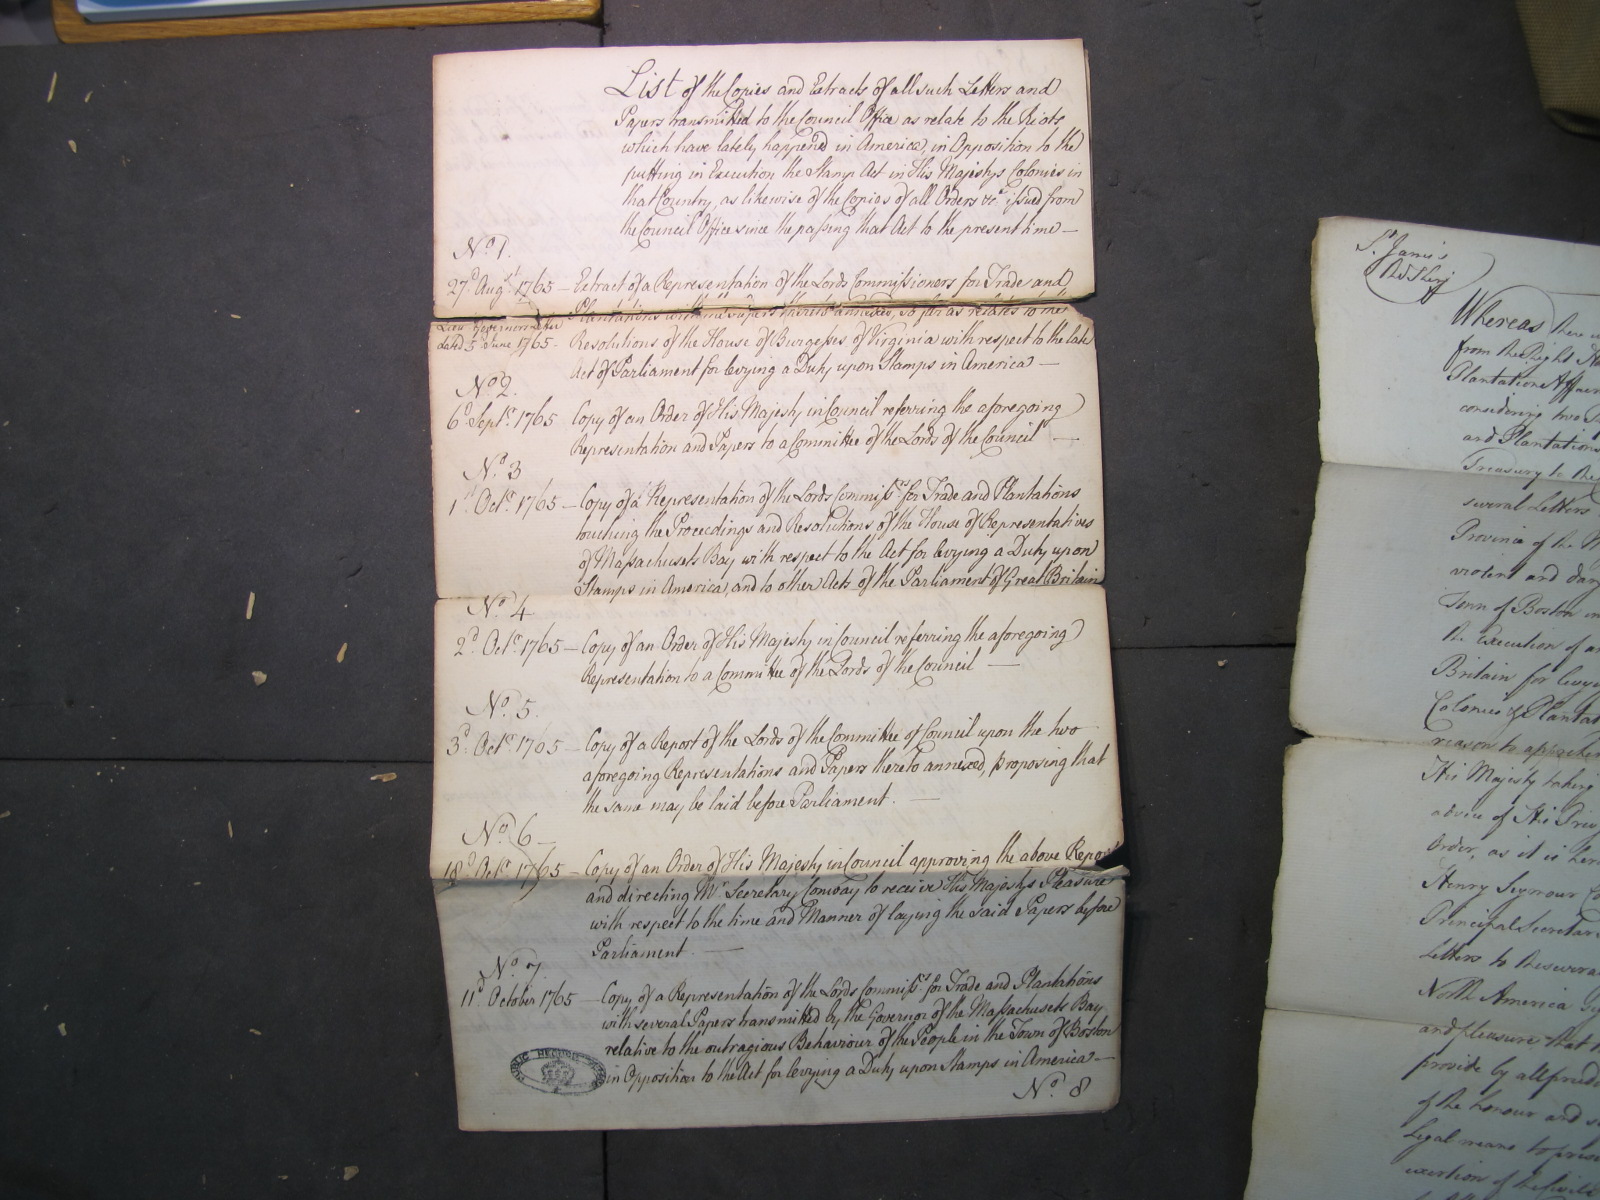 List of the Copies and Extracts of all such Letters and
Papers transmitted to the Council Office as relate to the Riots
which have lately happen'd in America, in Opposition to the
putting in Execution the Stamp Act in His Majestys Colonies in
that Country, as likewise of the Copies of all Orders &c.a issued from
the Council Office since the passing that Act to the present time —
No. 1.
27.d Augst. 1765 — Extract of a Representation of the Lords Commissioners for Trade and
Plantations with the Papers thereto annexed, so far as relates to the
Lieu.t Governors letter
dated 5 June 1765 - Resolutions of the House of Burgesses of Virginia with respect to the late
Act of Parliament for levying a Duty upon Stamps in America —
No. 2
6.d Sept.r 1765 Copy of an Order of His Majesty in Council referring the aforegoing
Representation and Papers to a Committee of the Lords of the Council —
No. 3
1st Oct.r 1765 — Copy of a Representation of the Lords Commiss.rs for Trade and Plantations
touching the Proceedings and Resolutions of the House of Representatives
of Massachusets Bay with respect to the Act for levying a Duty upon
Stamps in America, and to other Acts of the Parliament of Great Britain
No. 4
2.d Oct.r 1765 — Copy of an Order of His Majesty in Council referring the aforegoing
Representation to a Committee of the Lords of the Council —
No. 5.
3.d Oct.r 1765 — Copy of a Report of the Lords of the Committee of Council upon the two
aforegoing Representations and Papers thereto annexed, proposing that
the same may be laid before Parliament. —
No. 6 —
18.d Oct.r 1765 — Copy of an Order of His Majesty in Council approving the above Report
and directing Mr. Secretary Conway to receive His Majestys Pleasure
with respect to the time and Manner of laying the said Papers before
Parliament —
No. 7.
11.d October 1765 — Copy of a Representation of the Lords Commiss.rs for Trade and Plantations
with several Papers transmitted by the Governor of the Massachusets Bay
relative to the outragious Behaviour of the People in the Town of Boston
in Opposition to the Act for levying a Duty upon Stamps in America —
No. 8
PUBLIC RECORD OFFICE
St. James's
Whereas there
from the Right
Plantation Affairs
considering two
and Plantations
Treasury to the
several Letters
Province of the
violent and
Town of Boston in
the Execution of
Britain for
Colonies & Plantat
reason to
His Majesty taking
advice of His Privy
Order, as it is
Henry Seymour
Principal Secretar
Letters to the several
North America
and pleasure that
provide by all
of the honour and
Legal means to
exertion of the